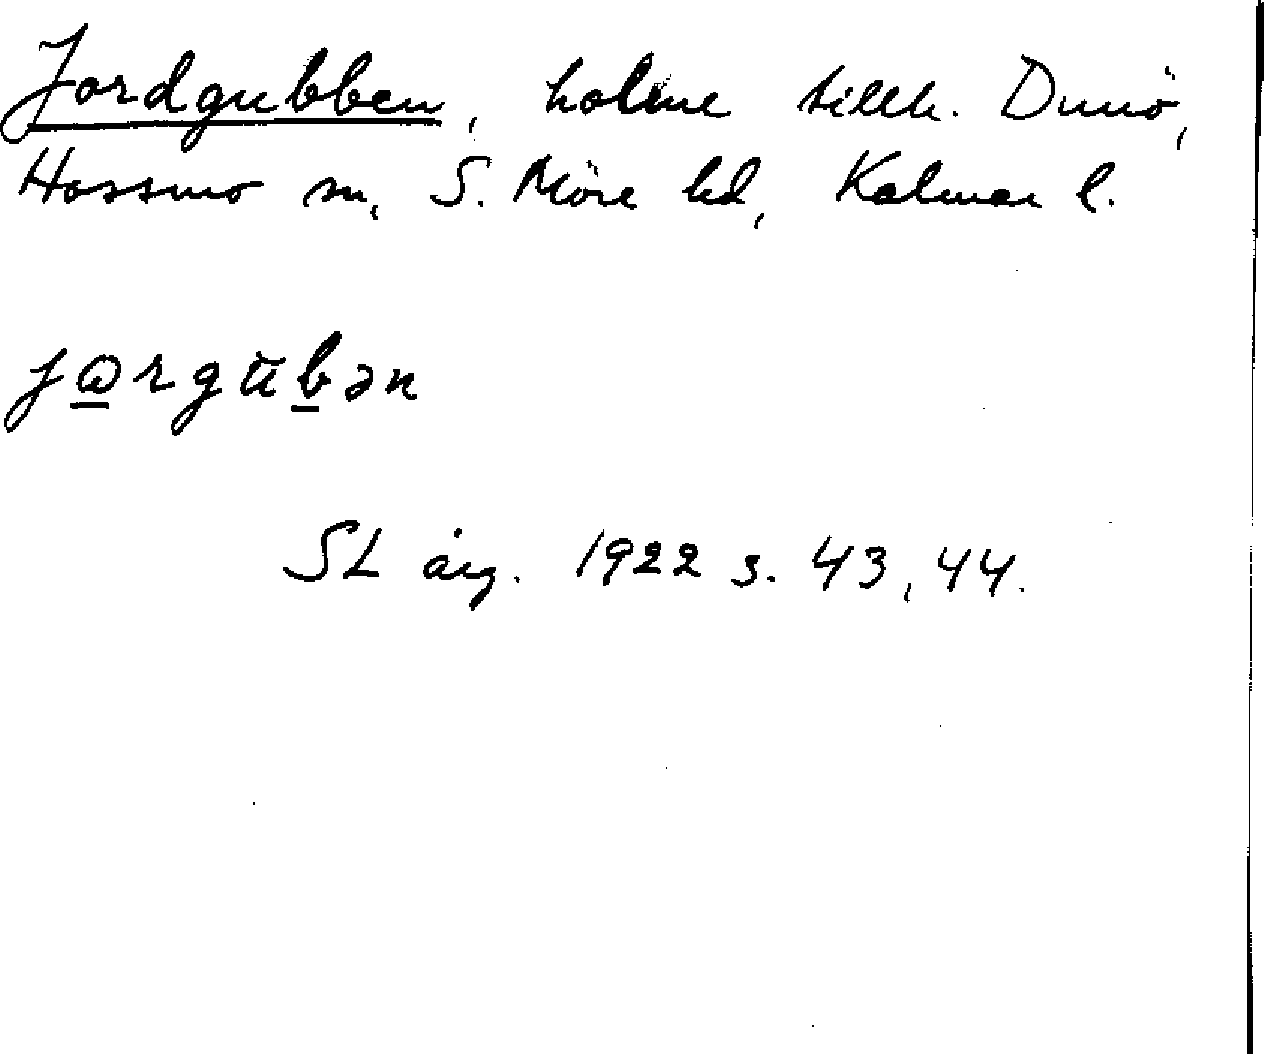 Jordgubben, holme tillh. Dunö,
Hossmo sn, S. Möre hd, Kalmar l.
jωrgūbən
SL årg. 1922 s. 43, 44.